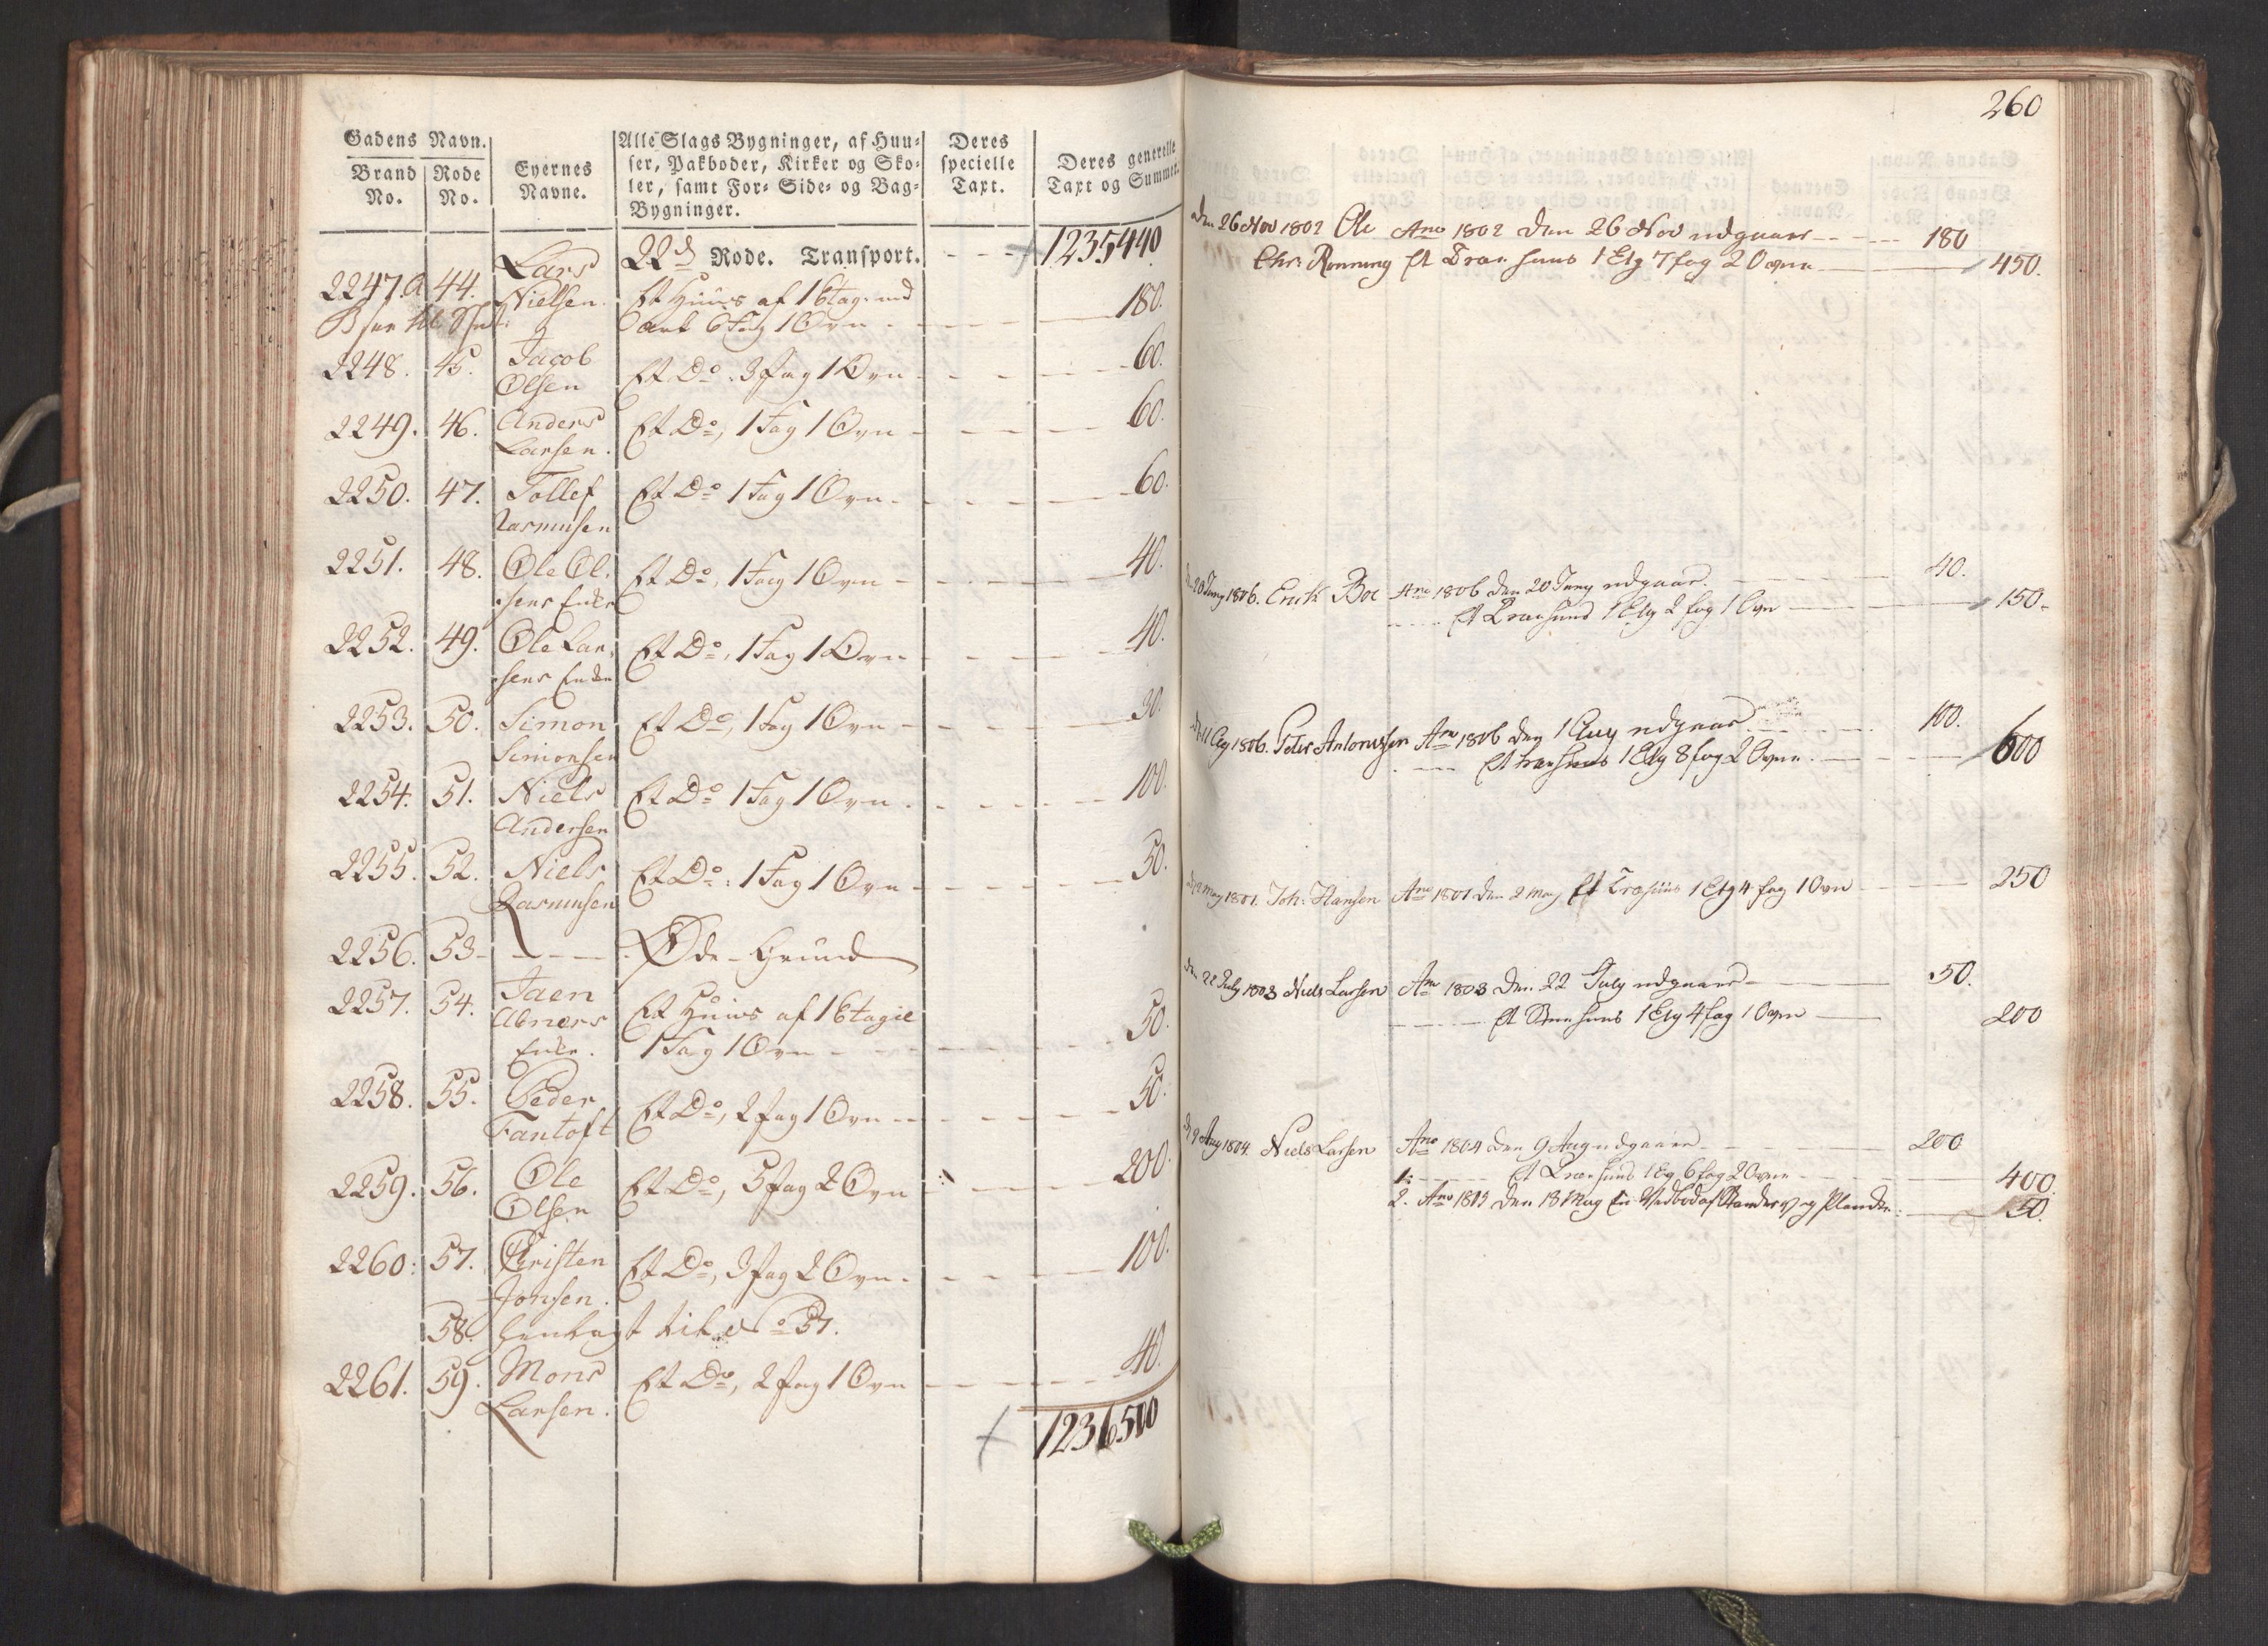 Gadens Navn.
Brand No.
Rode No.
Eyernes Navne.
Alle Slags Bygninger, af Huu-
ser, Pakboder, Kirker og Sko-
ler, samt For- Side- og Bag-
Bygninger.
Deres specielle Taxt.
Deres generelle Taxt og Summer.
22d Rode. Transport. 1235440
2247.a 44. Lars Nielsen. Et Huus af 1 Etag. med
6 Fag 1 Ovn 180.
2248. 45. Jacob Olsen Et Do. 3 Fag 1 Ovn 60.
2249. 46. Anders Larsen. Et Do, 1 Fag 1 Ovn 60.
2250. 47. Tollef Rasmusen Et Do 1 Fag 1 Ovn 60.
2251. 48. Ole Ol-
sens Enke Et Do, 1 Fag 1 Ovn 40.
2252. 49. Ole Lar-
sens Enke Et Do, 1 Fag 1 Ovn 40.
2253. 50. Simon Simonsen Et Do, 1 Fag 1 Ovn 30.
2254. 51. Niels Andersen Et Do 1 Fag 1 Ovn 100.
2255. 52. Niels Rasmusen Et Do: 1 Fag 1 Ovn 50.
2256. 53 Øde Grund
2257. 54. Jaen Abners Enke. Et Huus af 1 Etagie
1 Fag 1 Ovn 50.
2258. 55. Peder Fantoft Et Do, 2 Fag 1 Ovn 50.
2259. 56. Ole Olsen Et Do, 5 Fag 2 Ovn 200.
2260: 57. Christen Jonsen. Et Do, 3 Fag 2 Ovn. 100.
58. henlagt til No 57.
2261. 59. Mons Larsen. Et Do, 2 Fag 1 Ovn 40.
1236500
260
Den 26 Nov 1802 Ole Ano 1802 den 26 Nov udgaaer 180
Chr: Rönning Et Træe huus 1 Etg 7 fag 2 Ovne 450.
20 Juny 1806. Erich Boe Ano 1806 den 20 Juny udgaaer. 40.
Et Træehuus 1 Etg 2 fag 1 Ovn 150.
1806. Peter Antonissen Ano 1806 den 1 Aug udgaaer 100.
Et træehuus 1 Etg 8 fag 2 Ovne. 600
2 May 1801. Joh: Hansen Ano 1801 den 2 May Et Træhuus 1 Etg 4 fag 1 Ovn 250
den 22 July 1803 Niels Larsen Ano 1803 den 22 July udgaaer 50.
Et huus 1 Etg 4 fag 1 Ovn 200
9 Aug 1804. Niels Larsen Ano 1804 den 9 Aug udgaaer 200
1. Et Træehuus 1 Etg 6 fag 2 Ovne 400
2. Ano 1813 den 13 May En Vedbod af Stænder og Planker 50.